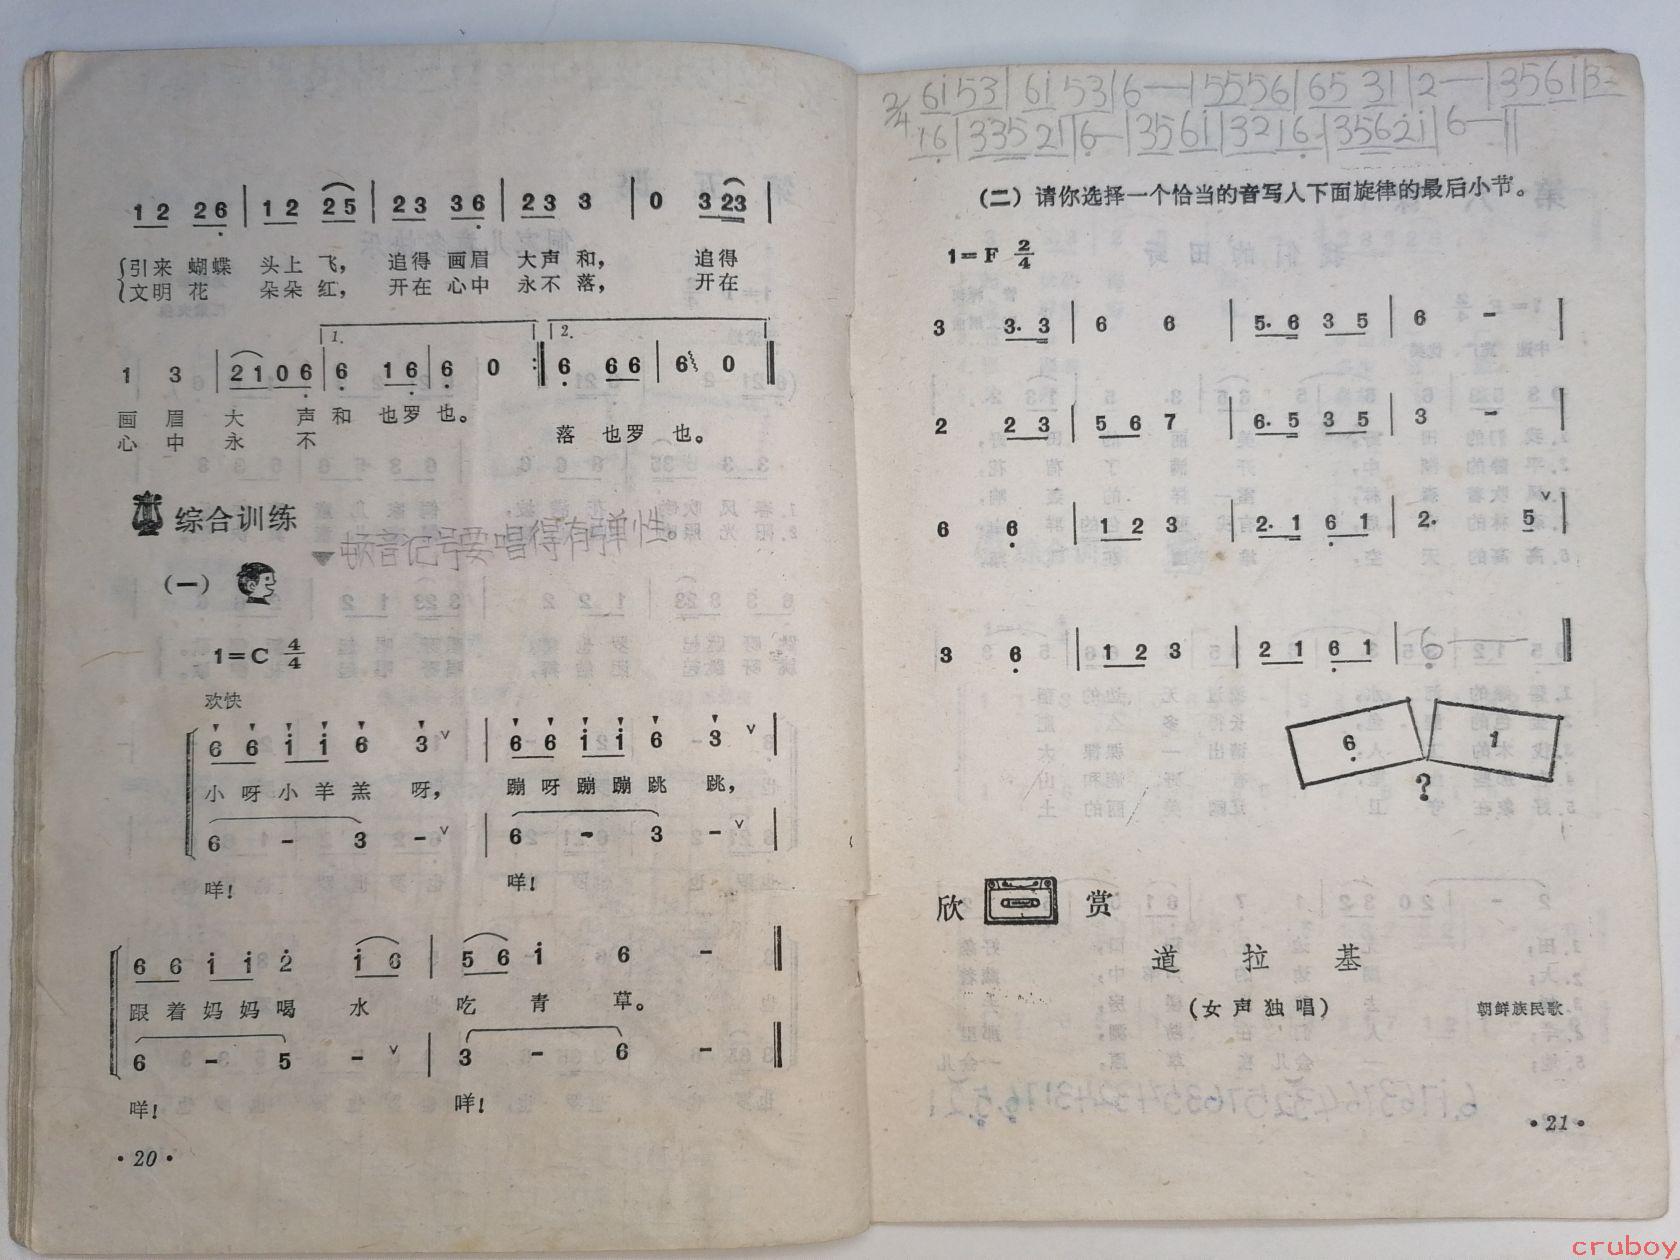 1 2 2 6 | 1 2 2 5 | 2 3 3 6 | 2 3 3 | 0 3 23 |
引来 蝴蝶 头上 飞， 追得 画眉 大声 和， 追得
文明 花 朵朵 红， 开在 心中 永不 落， 开在
1. 2.
1 3 | 2 1 0 6 | 6 1 6 | 6 0 :‖ 6 6 6 | 6 0 ‖
画 眉 大 声 和 也罗 也。
心 中 永 不 落 也罗 也。
综合训练
顿音记号要唱得有弹性。
（一）
1=C 4/4
欢快
6 6 i i 6 3 ∨ | 6 6 i i 6 3 ∨ |
小 呀 小 羊 羔 呀， 蹦 呀 蹦 蹦 跳 跳，
6 - 3 - ∨ | 6 - 3 - ∨ |
咩！ 咩！
6 6 i i 2̇ i 6 | 5 6 i 6 - ‖
跟 着 妈 妈 喝 水 吃 青 草。
6 - 5 - ∨ | 3 - 6 - ‖
咩！ 咩！
·20·
2/4 6i 53 | 6i 53 | 6 — | 55 56 | 65 31 | 2 — | 35 6i | 32
16 | 335 21 | 6 — | 35 61 | 32 16 | 356 2i | 6 — ‖
（二）请你选择一个恰当的音写入下面旋律的最后小节。
1=F 2/4
3 3. 3 | 6 6 | 5. 6 3 5 | 6 - |
2 2 3 | 5 6 7 | 6. 5 3 5 | 3 - |
6 6 | 1 2 3 | 2. 1 6 1 | 2. 5 ∨ |
3 6 | 1 2 3 | 2 1 6 1 | 6 — ‖
6 1
?
欣 赏
道 拉 基
（女 声 独 唱） 朝鲜族民歌
·21·
cruboy